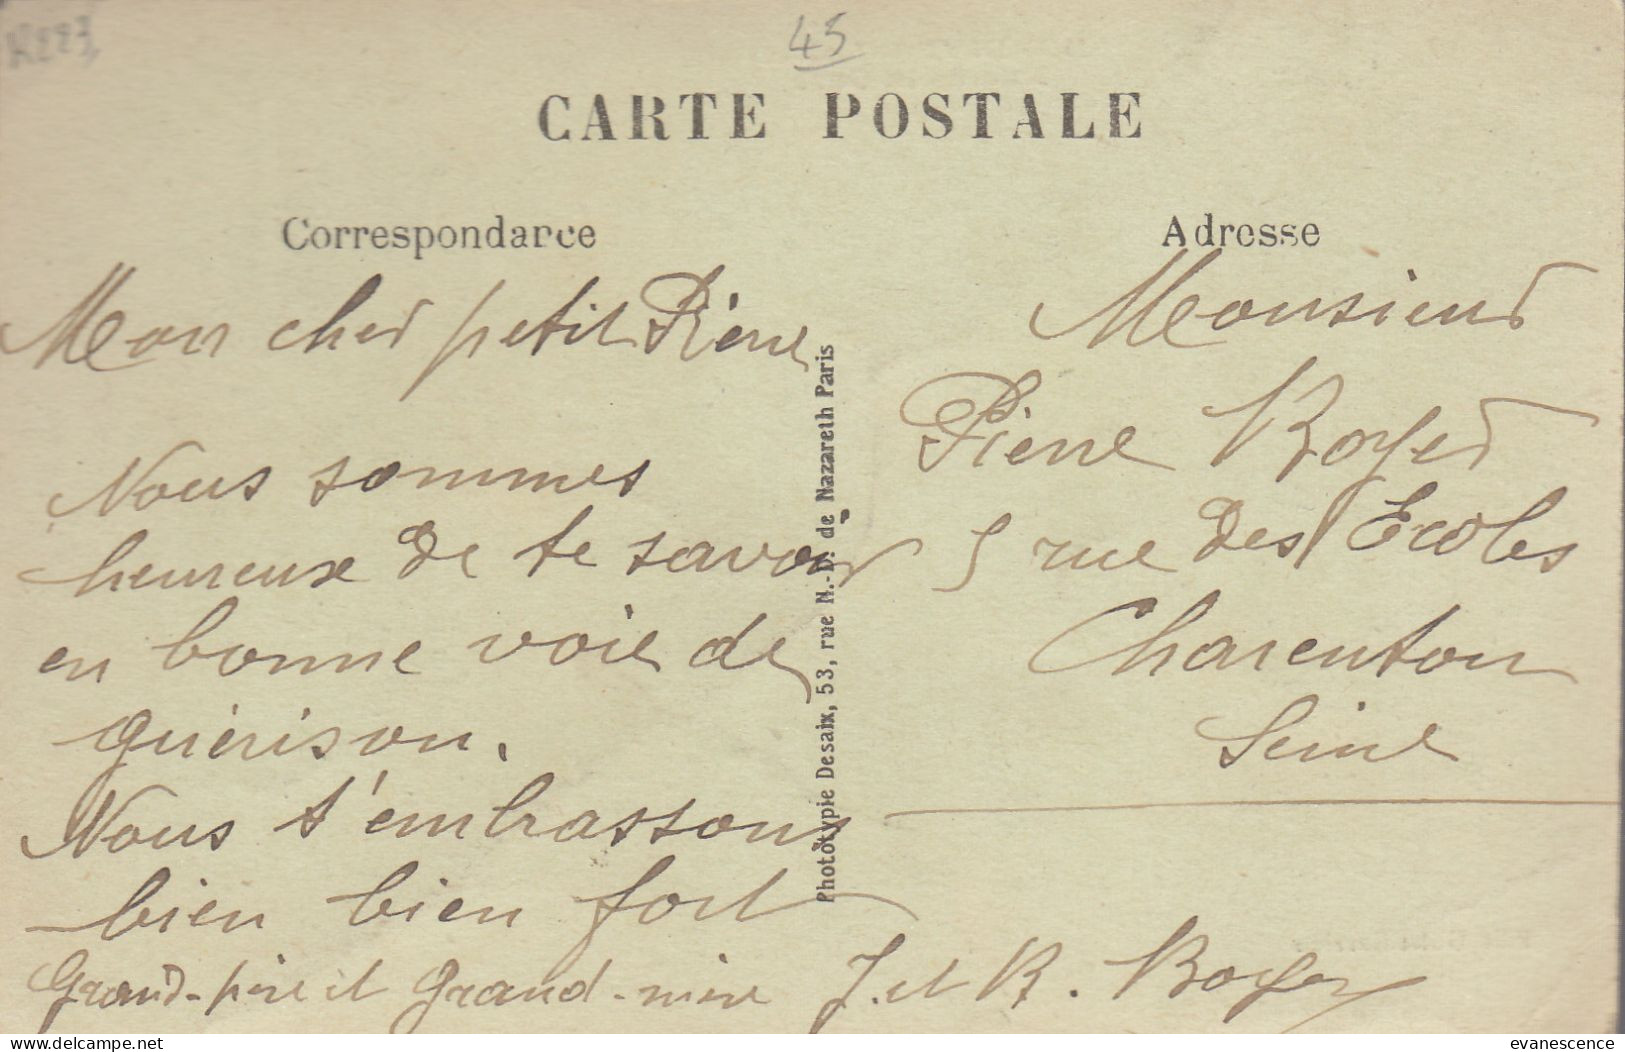 45
CARTE POSTALE
Correspondance
Adresse
Mon cher petit Pierre
Nous sommes
heureux de te savoir
en bonne voie de
guérison.
Nous t'embrassons
bien bien fort
Grand-père et Grand-mère J. et R. Royer
Phototypie Desaix, 53, rue N.-D. de Nazareth Paris
Monsieur
Pierre Royer
5 rue des Ecoles
Charenton
Seine
delcampe.net
evanescence